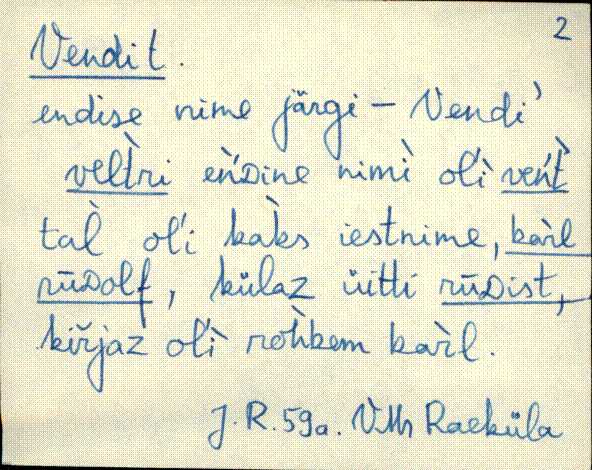 2
Vendit.
endise nime järgi – Vendi
vel̀tri eǹDine nimì ol'ì veǹ't
tal̀ ol'i kak̀s iestnime, kar̀l
rūDolf, külaz üitti rūDist,
kir̆jaz ol'ì roh̀kem kar̀l.
J. R. 59a. VMr Raeküla